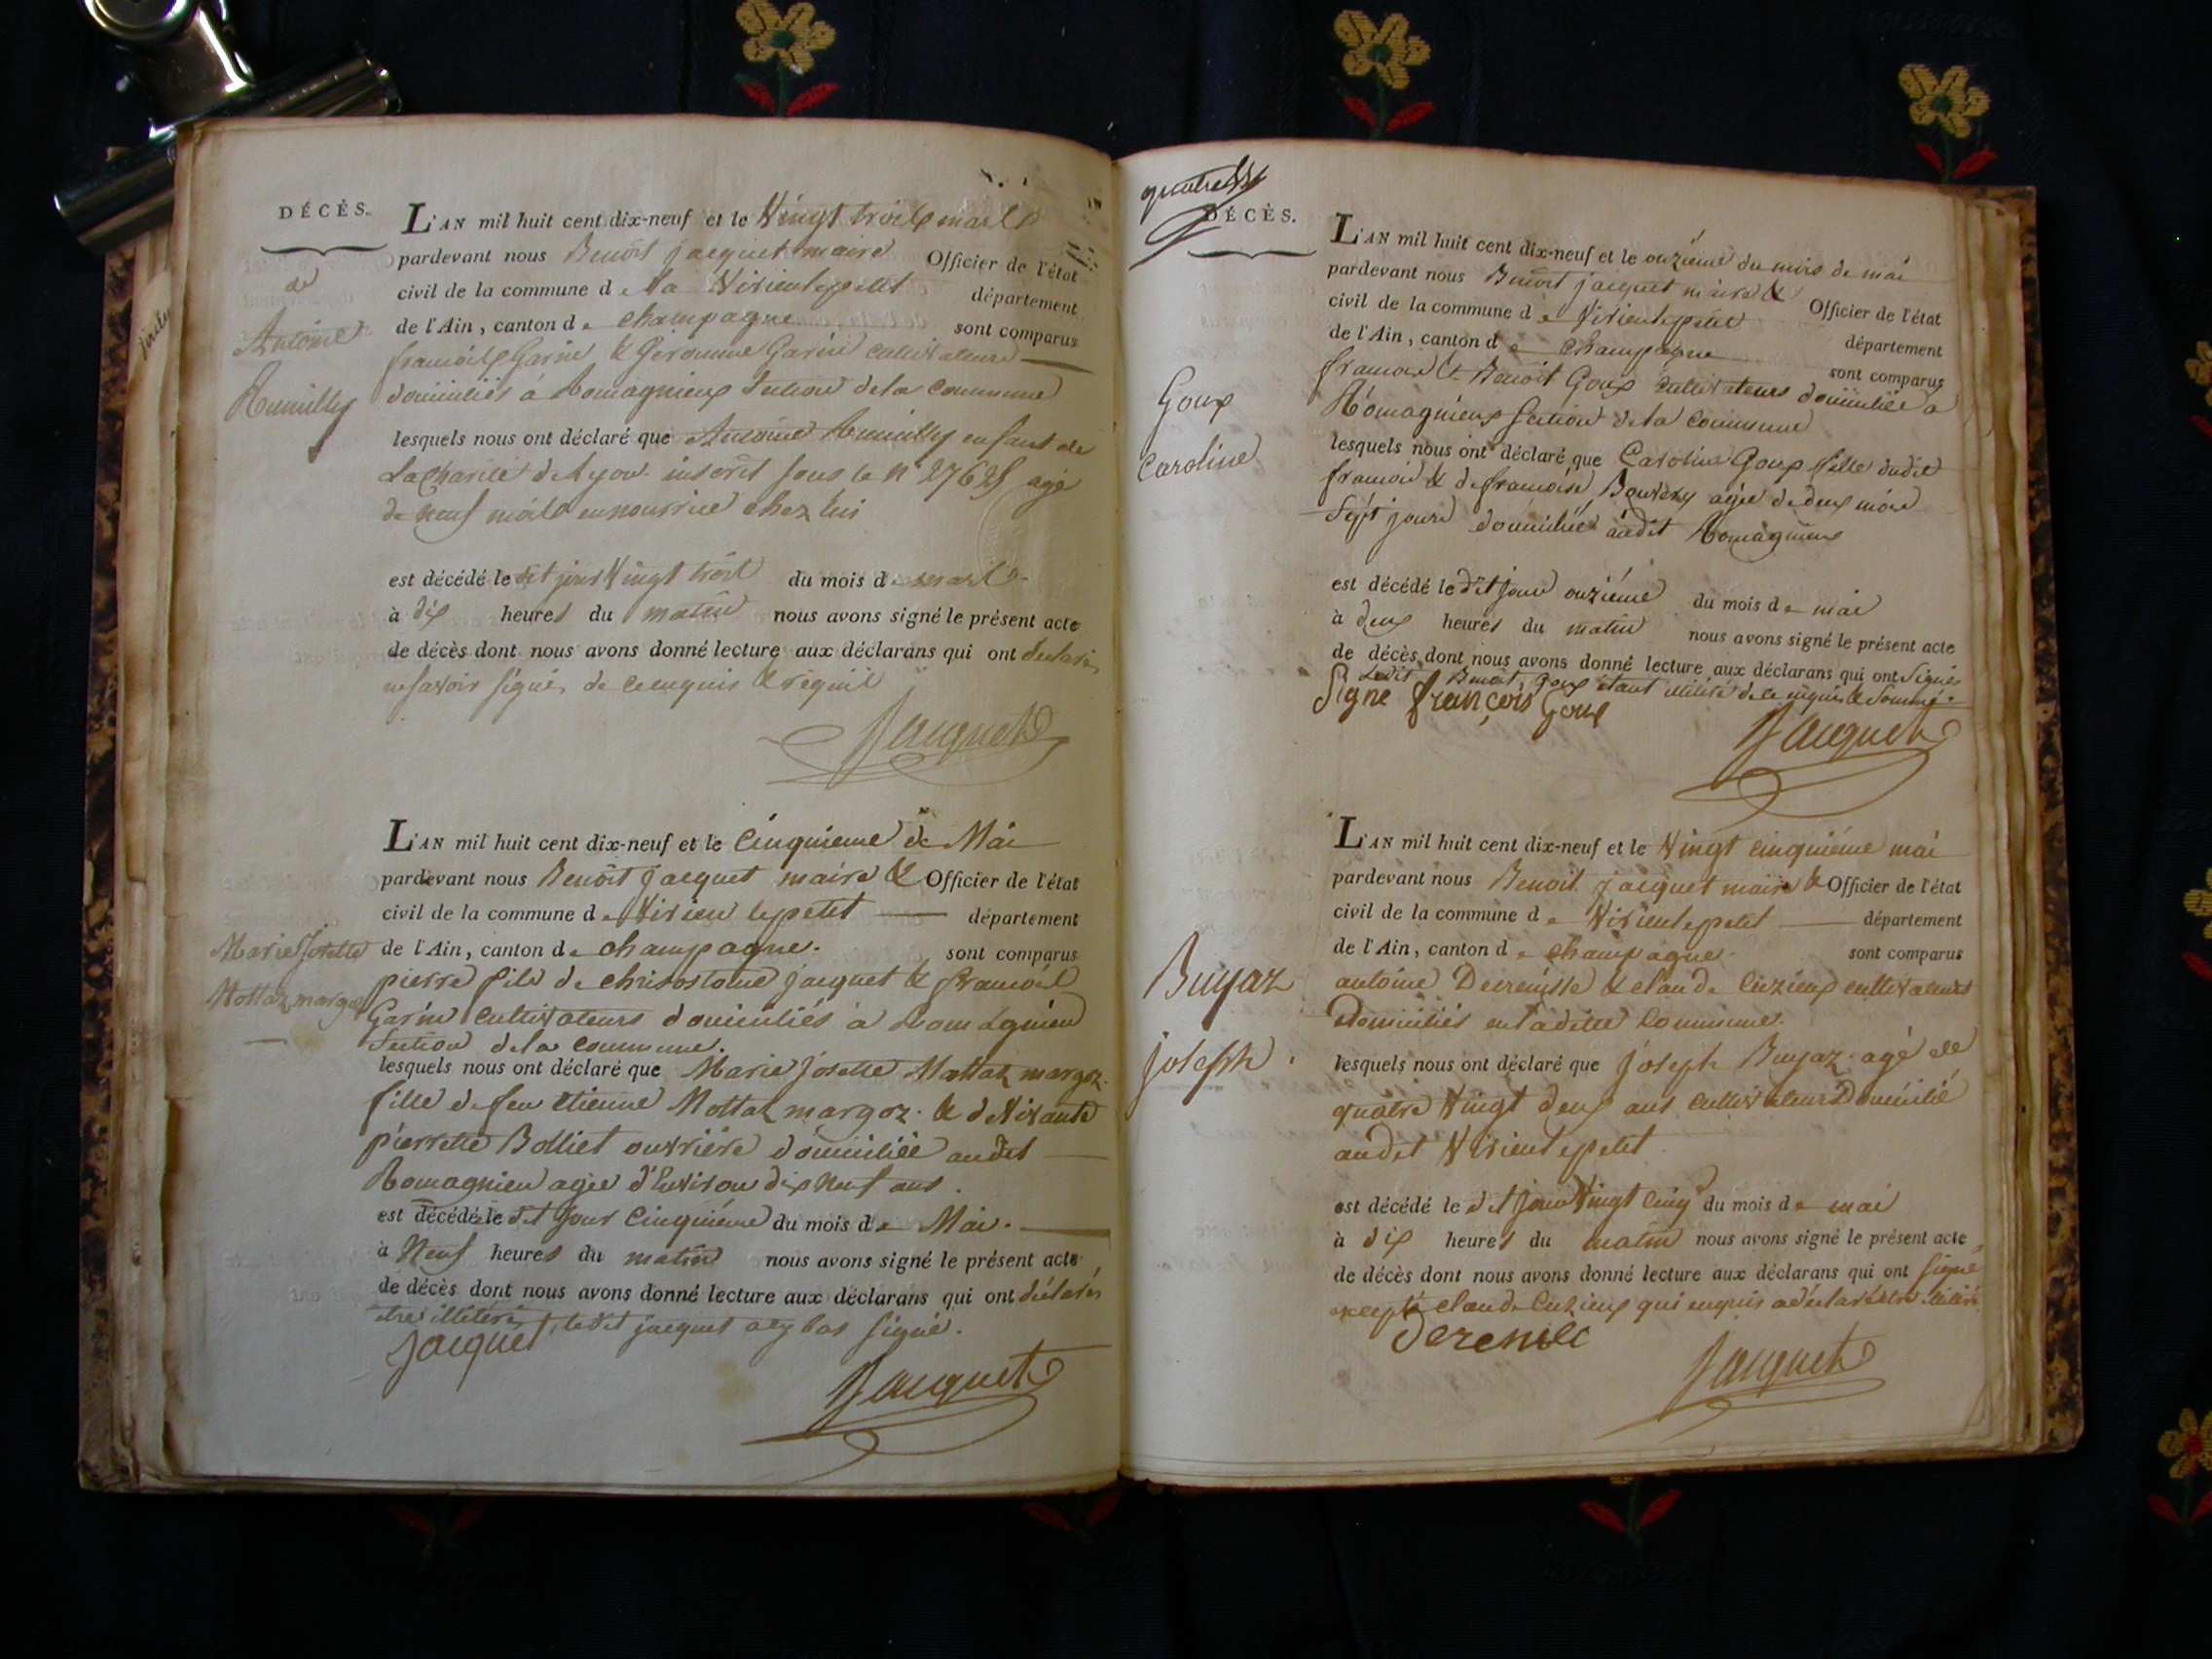 DÉCÈS.
de
Antoine
Rumilly
L'AN mil huit cent dix-neuf et le Vingt trois mars
pardevant nous Benoit jacquet maire Officier de l'état
civil de la commune de Virieulepetit département
de l'Ain, canton de Champagne sont comparus
francois Garin & Geromme Garin cultivateurs
domiciliés à Romagnieux Section dela Commune
lesquels nous ont déclaré que Antoine Rumilly enfant de
La Charité de Lyon inscrit sous le N° agé
de neuf mois ennourrice chez lui
est décédé le dit jour Vingt trois du mois de mars
à dix heures du matin nous avons signé le présent acte
de décès dont nous avons donné lecture aux déclarans qui ont déclarés
nesavoir signé, de ce enquis & requis
Jacquet
Marie Josette
Mottaz margoz
L'AN mil huit cent dix-neuf et le Cinquieme de Mai
pardevant nous Benoit Jacquet maire & Officier de l'état
civil de la commune de Virieu lepetit département
de l'Ain, canton de champagne. sont comparus
pierre fils de chrisostome jacquet & francois
Garin cultivateurs domiciliés à Romagnieu
Section dela commune.
lesquels nous ont déclaré que Marie Josette Mottaz margoz.
fille de feu etienne Mottaz margoz. & de Vivante
pierrette Bolliet ouvrière domiciliée audit
Romagnieu agée d'Environ dix Neuf ans.
est décédé le dit jour Cinquième du mois de Mai.
à Neuf heures du matin nous avons signé le présent acte
de décès dont nous avons donné lecture aux déclarans qui ont déclarés
etre illitérés, ledit jacquet a signé.
jacquet
Jacquet
DÉCÈS.
Goux
Caroline
L'AN mil huit cent dix-neuf et le onzième du mois de mai
pardevant nous Benoit jacquet maire & Officier de l'état
civil de la commune de Virieulepetit département
de l'Ain, canton de Champagne sont comparus
francois & Benoit Goux cultivateurs domiciliés à
Romagnieux Section dela Commune
lesquels nous ont déclaré que Caroline Goux fille dudit
francois & de francoise Bouvezy agée de deux mois
Sept jours domiciliée audit Romagnieux
est décédé le dit jour onzième du mois de mai
à deux heures du matin nous avons signé le présent acte
de décès dont nous avons donné lecture aux déclarans qui ont Signés
Ledit Benoit Goux etant illitéré de ce requis & Sommé.
Signe françois Goux
Jacquet
Buyaz
joseph.
L'AN mil huit cent dix-neuf et le Vingt cinquième mai
pardevant nous Benoit jacquet maire & Officier de l'état
civil de la commune de Virieulepetit département
de l'Ain, canton de Champagne. sont comparus
antoine & claude Cuzieux cultivateurs
Domiciliés enladitte Commune.
lesquels nous ont déclaré que joseph Buyaz agé de
quatre Vingt deux ans cultivateur Domicilié
audit Virieulepetit
est décédé le dit jour Vingt Cinq du mois de mai
à dix heures du matin nous avons signé le présent acte
de décès dont nous avons donné lecture aux déclarans qui ont signé
excepté claude Cuzieux qui enquis a déclaré etre illitéré
Jacquet